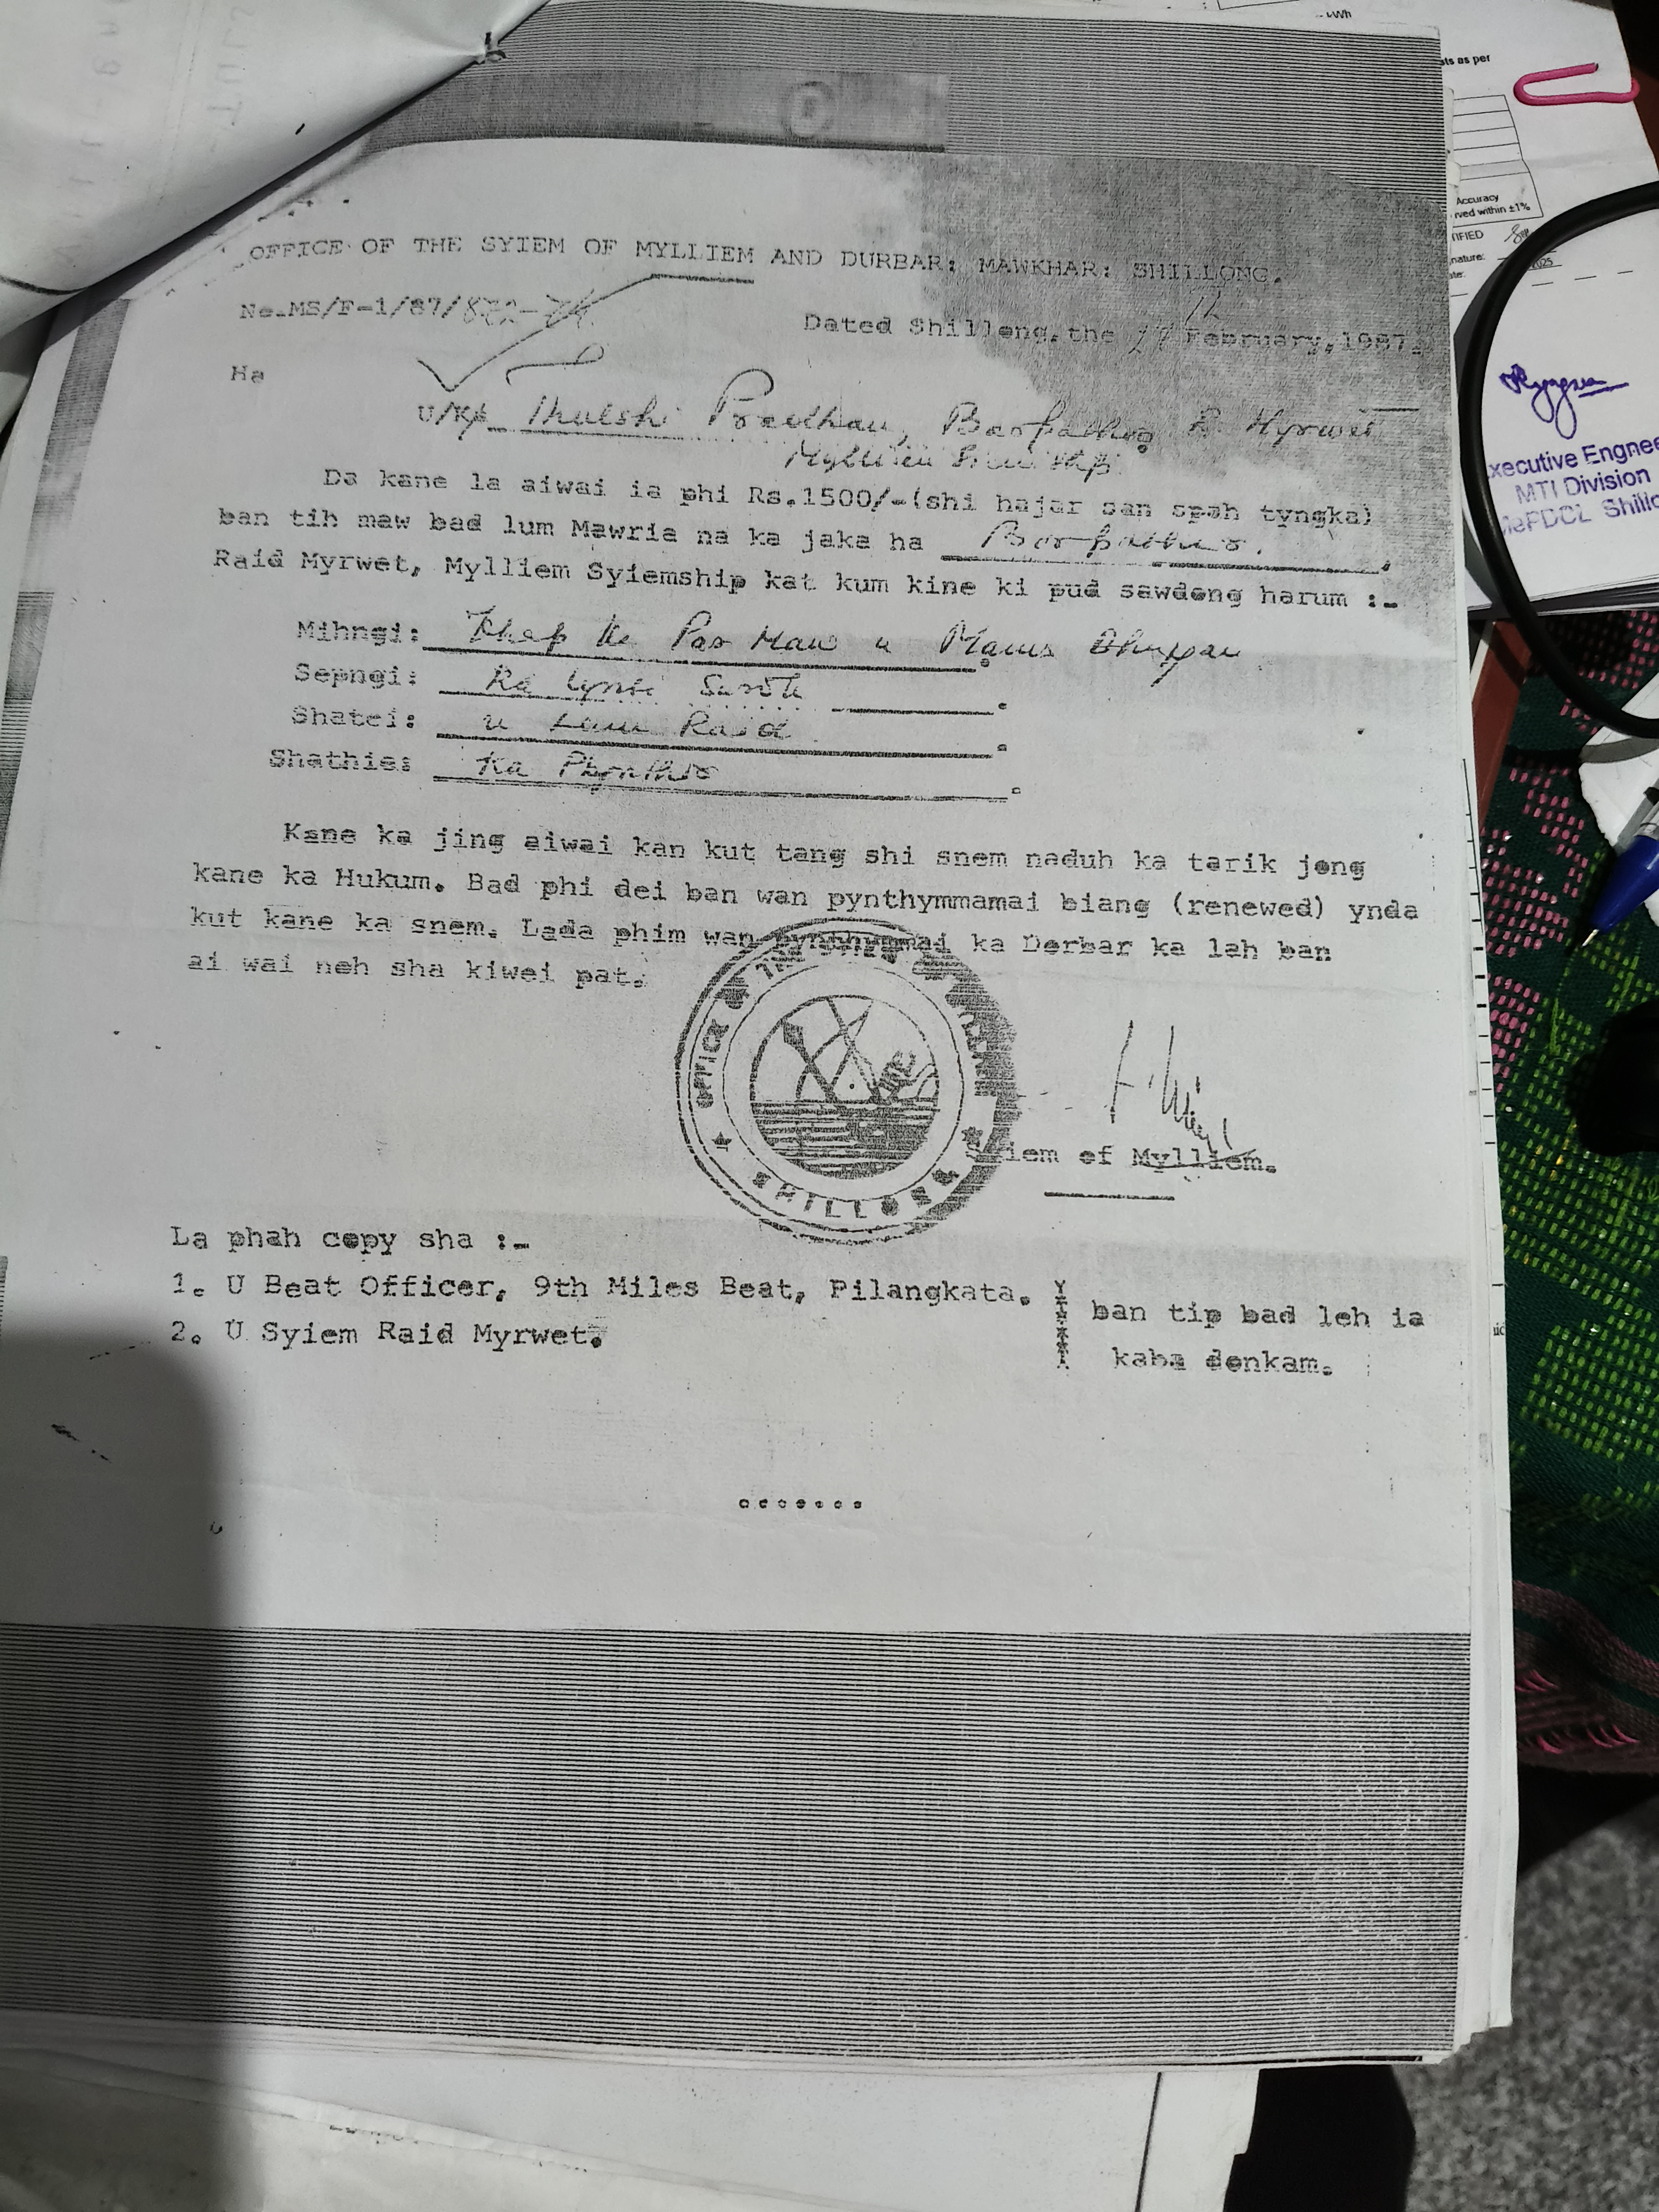 OFFICE OF THE SYIEM OF MYLLIEM AND DURBAR: MAWKHAR: SHILLONG.
No.MS/F-1/87/
Dated Shillong, the 17 th February, 1987.
Ha
U/Ka Thulshi Pradhan, Barpathar R Myrwet
Mylliem Syiemship
Da kane la aiwai ia phi Rs.1500/-(shi hajar san spah tyngka)
ban tih maw bad lum Mawria na ka jaka ha Barpathar.
Raid Myrwet, Mylliem Syiemship kat kum kine ki pud sawdong harum :-
Mihngi: Khap ka Par Maw u
Sepngi: Ka
Shatei: u Lum Raid
Shathie: Ka
Kane ka jing aiwai kan kut tang shi snem naduh ka tarik jong
kane ka Hukum. Bad phi dei ban wan pynthymmamai biang (renewed) ynda
kut kane ka snem. Lada phim wan pynthymmai ka Dorbar ka lah ban
ai wai noh sha kiwei pat.
OFFICE SHILLONG
Syiem of Mylliem.
La phah copy sha :-
1. U Beat Officer, 9th Miles Beat, Pilangkata.
2. U Syiem Raid Myrwet.
ban tip bad leh ia
kaba donkam.
sts as per
Accuracy
rved within ±1%
TIFIED
nature:
Executive Engnee
MTI Division
MePDCL Shillo